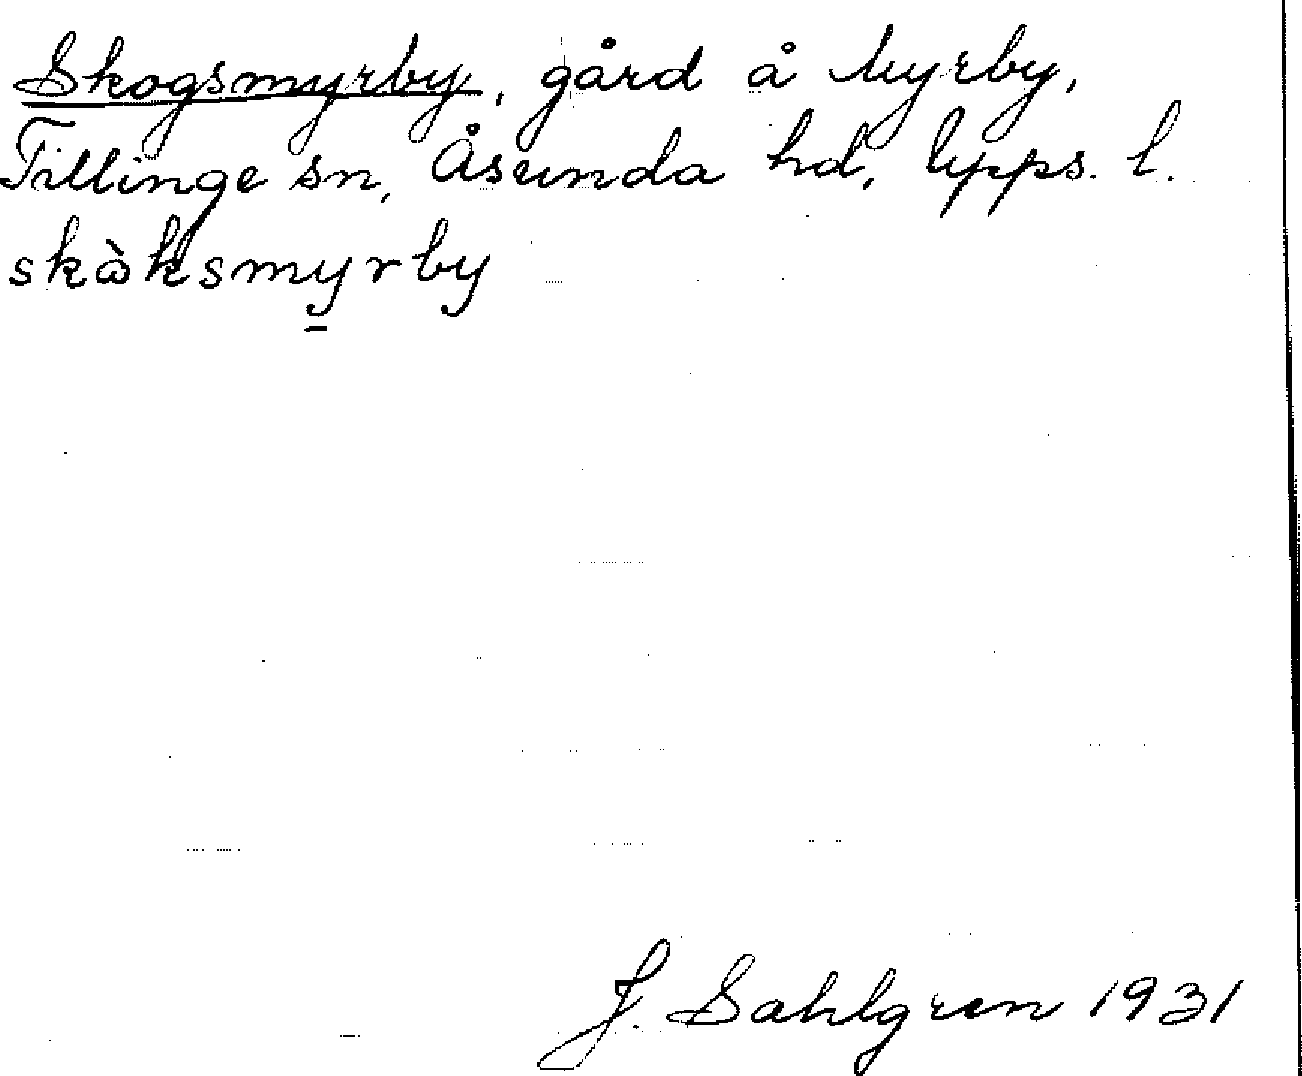 Skogsmyrby, gård å Myrby,
Tillinge sn, Åsunda hd, Upps. l.
skὼksmy̠rby
J. Sahlgren 1931